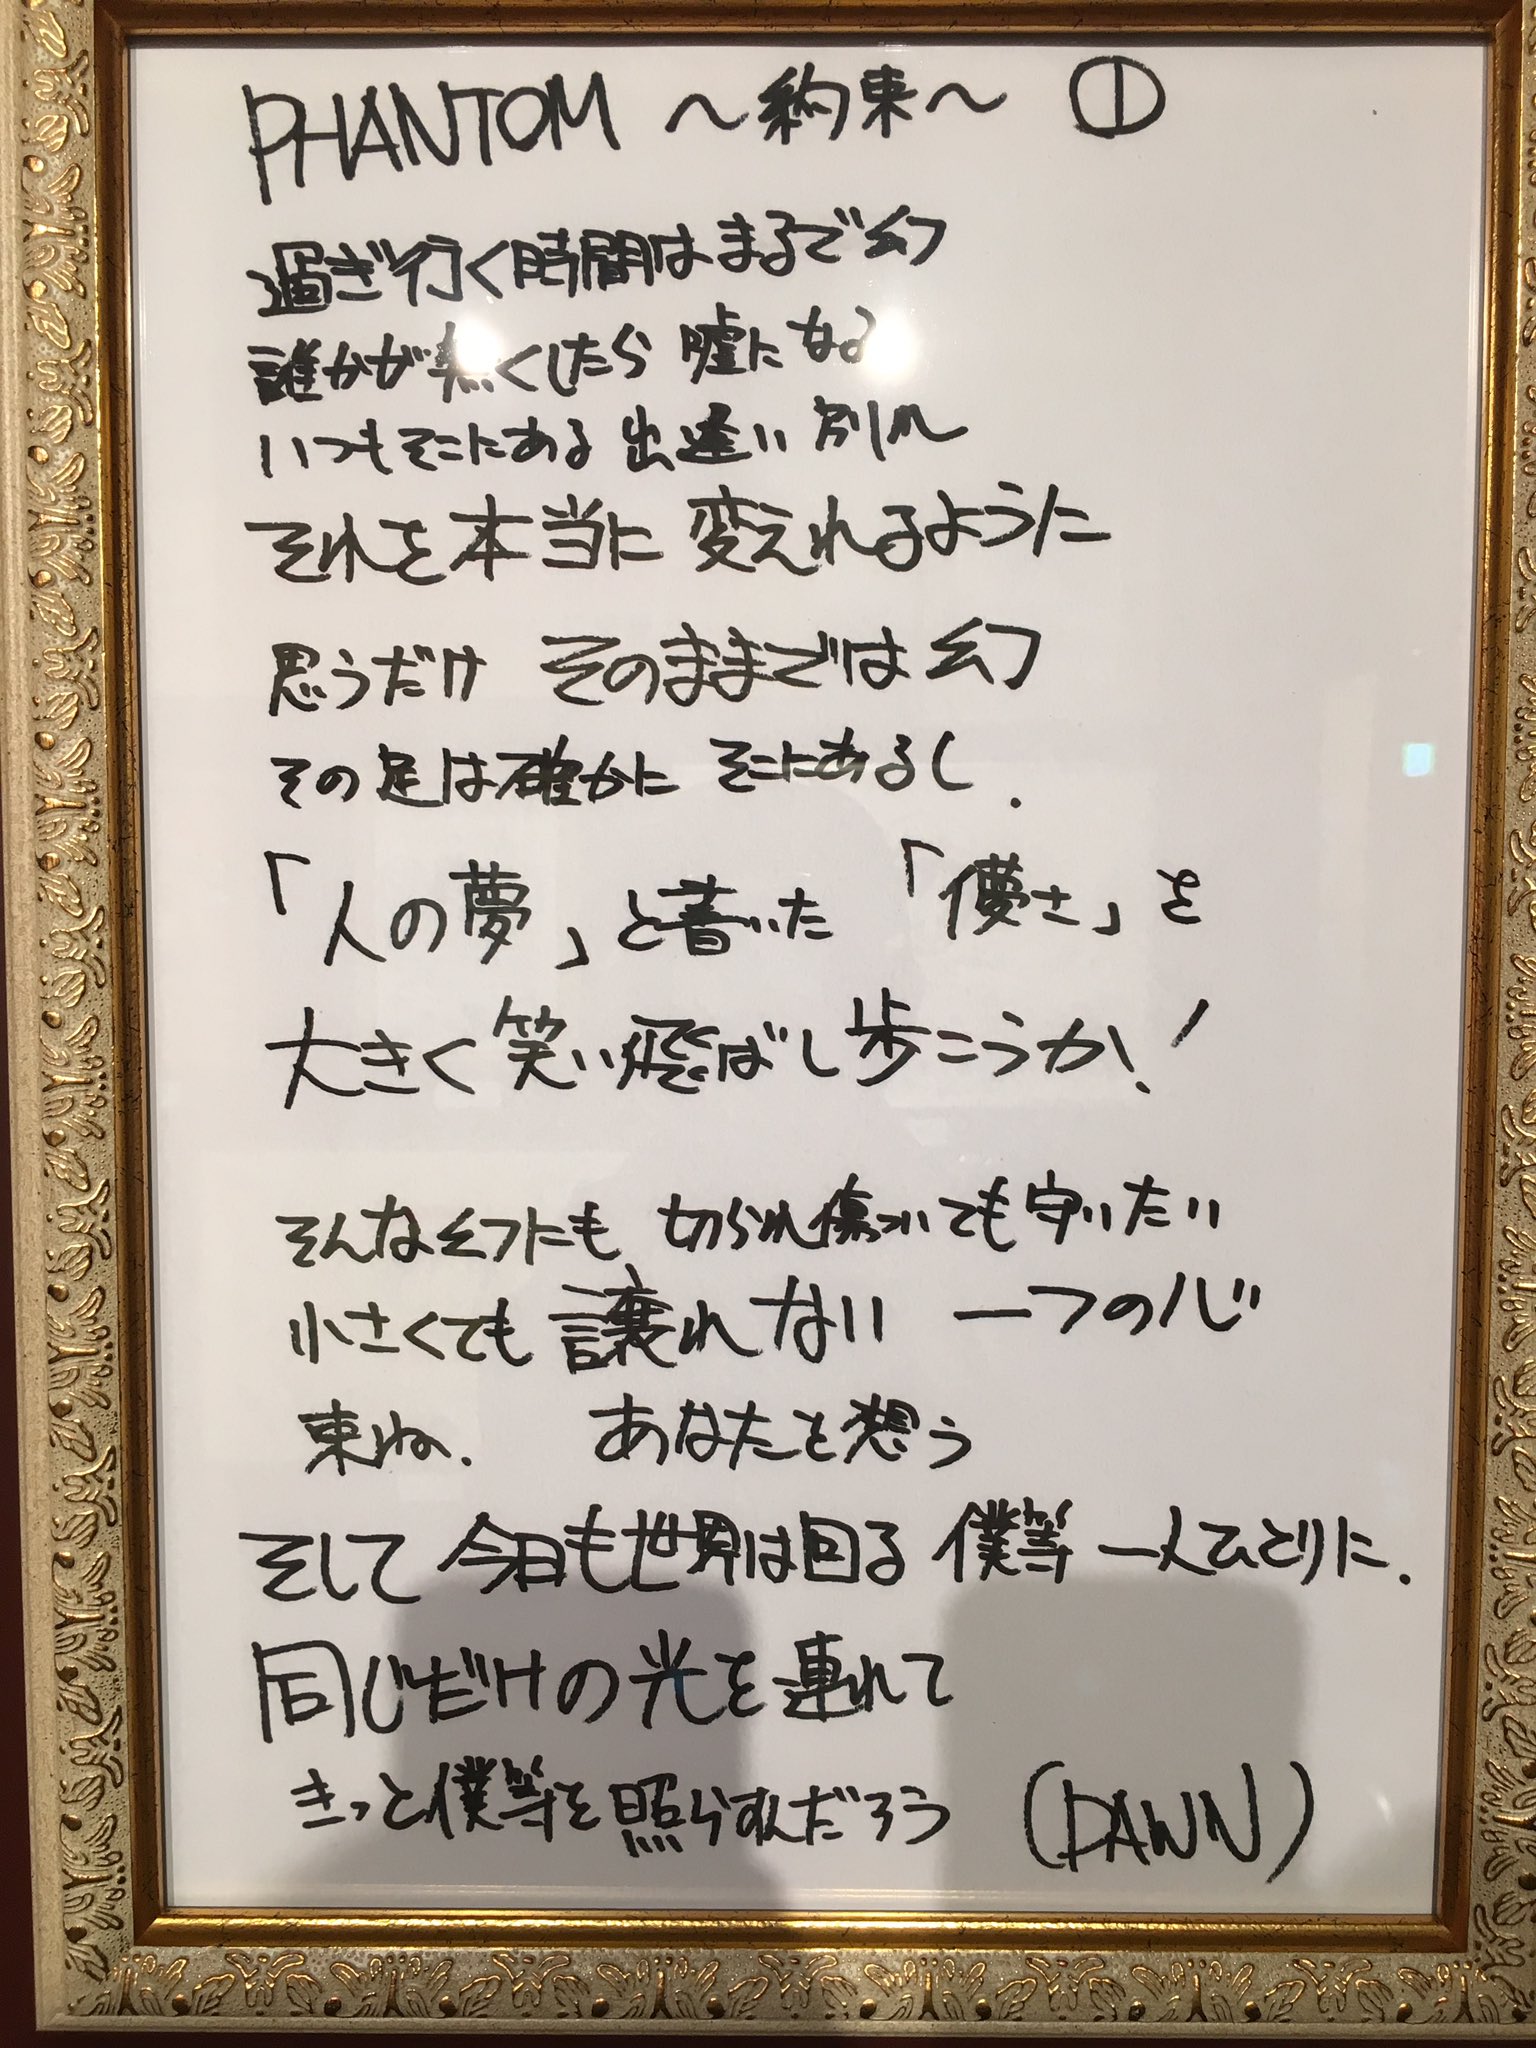 PHANTOM 〜約束〜 ①
過ぎ行く時間はまるで幻
誰かが無くしたら 嘘になる
いつもそこにある 出逢い 別れ
それを本当に 変えれるように
思うだけ そのままでは 幻
その足は確かに そこにあるし.
「人の夢」と書いた 「儚さ」を
大きく笑い飛ばし歩こうか!
そんな幻にも 切られ傷ついても 守りたい
小さくても 譲れない 一つの心
束ね. あなたを想う
そして 今日も世界は回る 僕等 一人ひとりに.
同じだけの光を連れて
きっと僕等を照らすんだろう (DAWN)